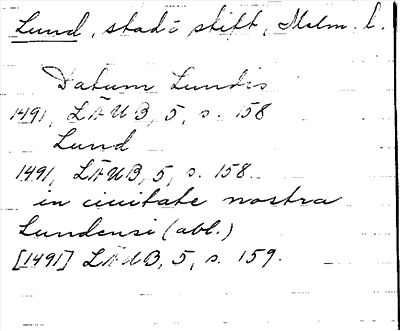 Lund, stad i stift, Malm. l.
Datum Lundis
1491, LÄUB, 5, s. 158
Lund
1491, LÄUB, 5, s. 158.
in ciuitate nostra
Lundensi (abl.)
[1491] LÄUB, 5, s. 159.